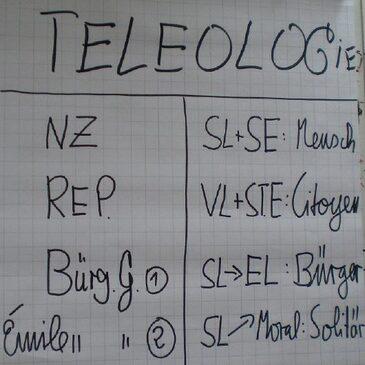 TELEOLOGiE
NZ SL+SE: Mensch
REP. VL+STE: Citoyen
Bürg. G. ① SL→EL: Bürger
Émile " " ② SL↗Moral: Solitär